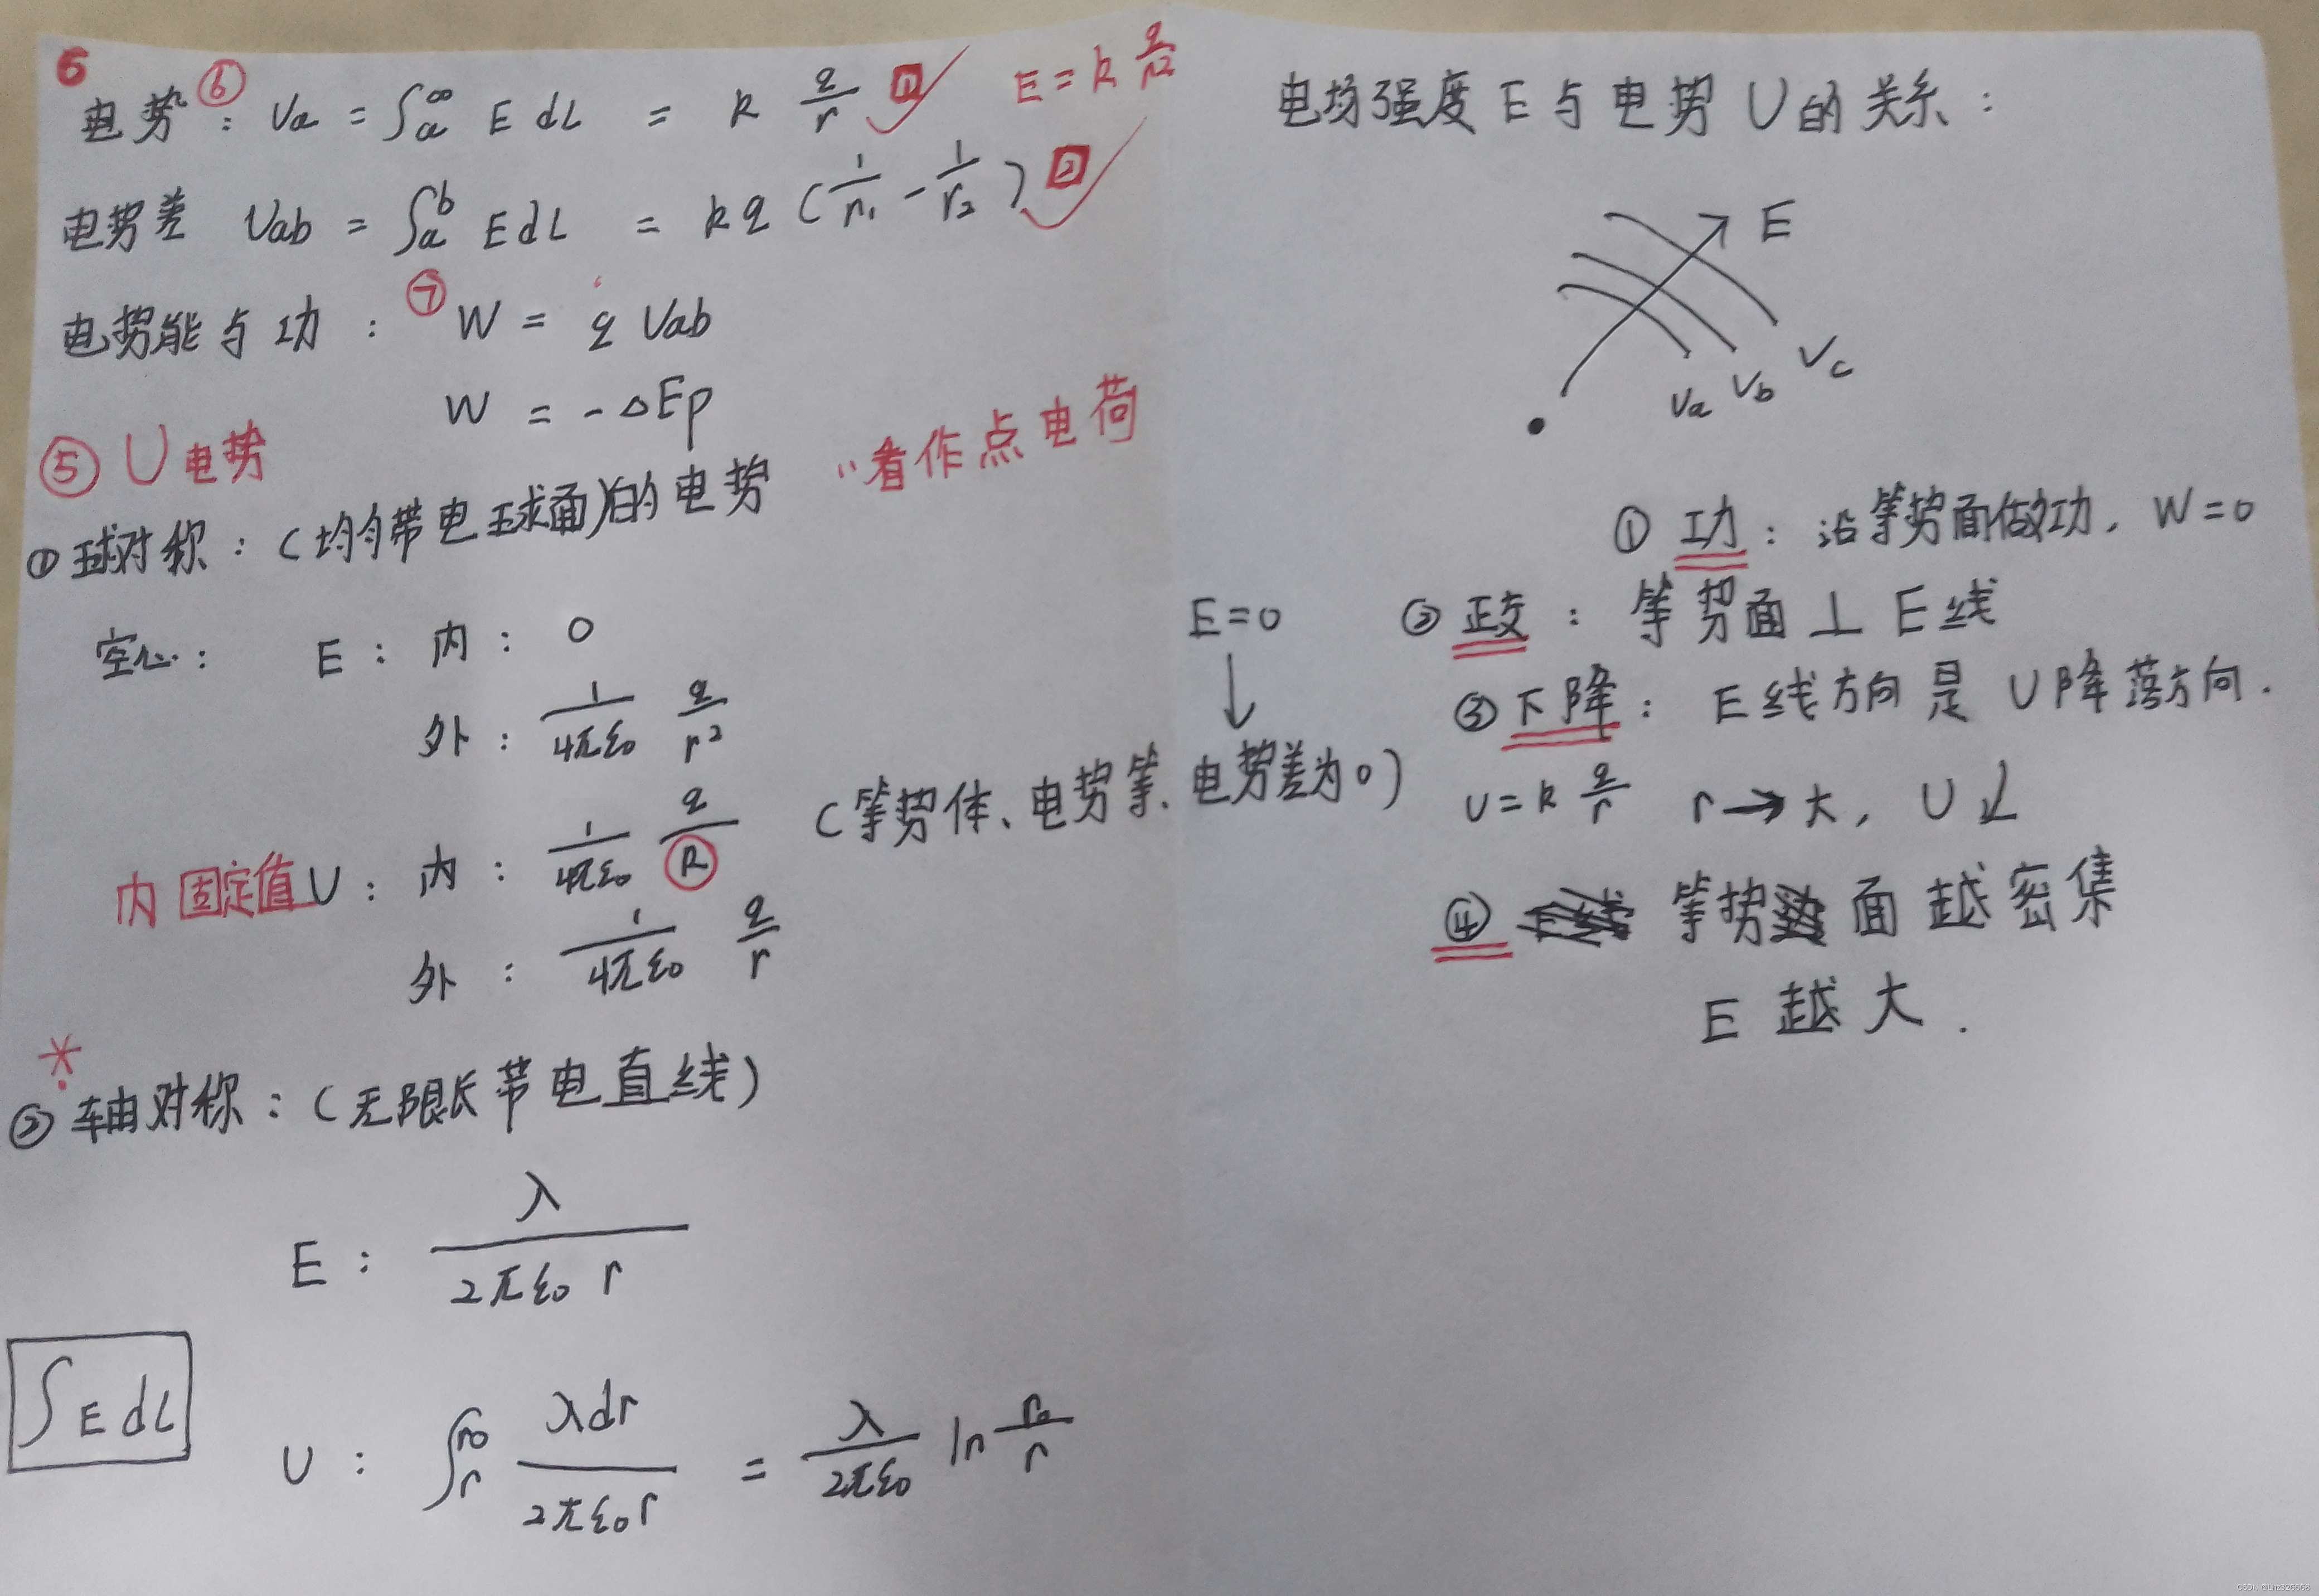 6
电势⑥: Ua = ∫a^∞ E dL = k q/r 1 ✓ E = k q/r²
电势差 Uab = ∫a^b E dL = kq (1/r₁ - 1/r₂) 2 ✓
电势能与功: ⑦ W = q Uab
W = -△Ep
⑤ U 电势
①球对称:(均匀带电球面)的电势 "看作点电荷
空心: E: 内: 0
外: 1/4πε₀ q/r²
内固定值 U: 内: 1/4πε₀ q/R (等势体、电势等、电势差为0)
E=0
↓
外: 1/4πε₀ q/r
*
②轴对称:(无限长带电直线)
E: λ/2πε₀ r
∫E dL
U: ∫r^r₀ λdr/2πε₀r = λ/2πε₀ ln r₀/r
电场强度E与电势U的关系:
E
Va Vb Vc
① 功: 沿等势面做功, W=0
② 正交: 等势面⊥E线
③ 下降: E线方向是U降落方向.
U=k q/r r→大, U↓
④ 等势面越密集
E越大.
CSDN @Lhz326568